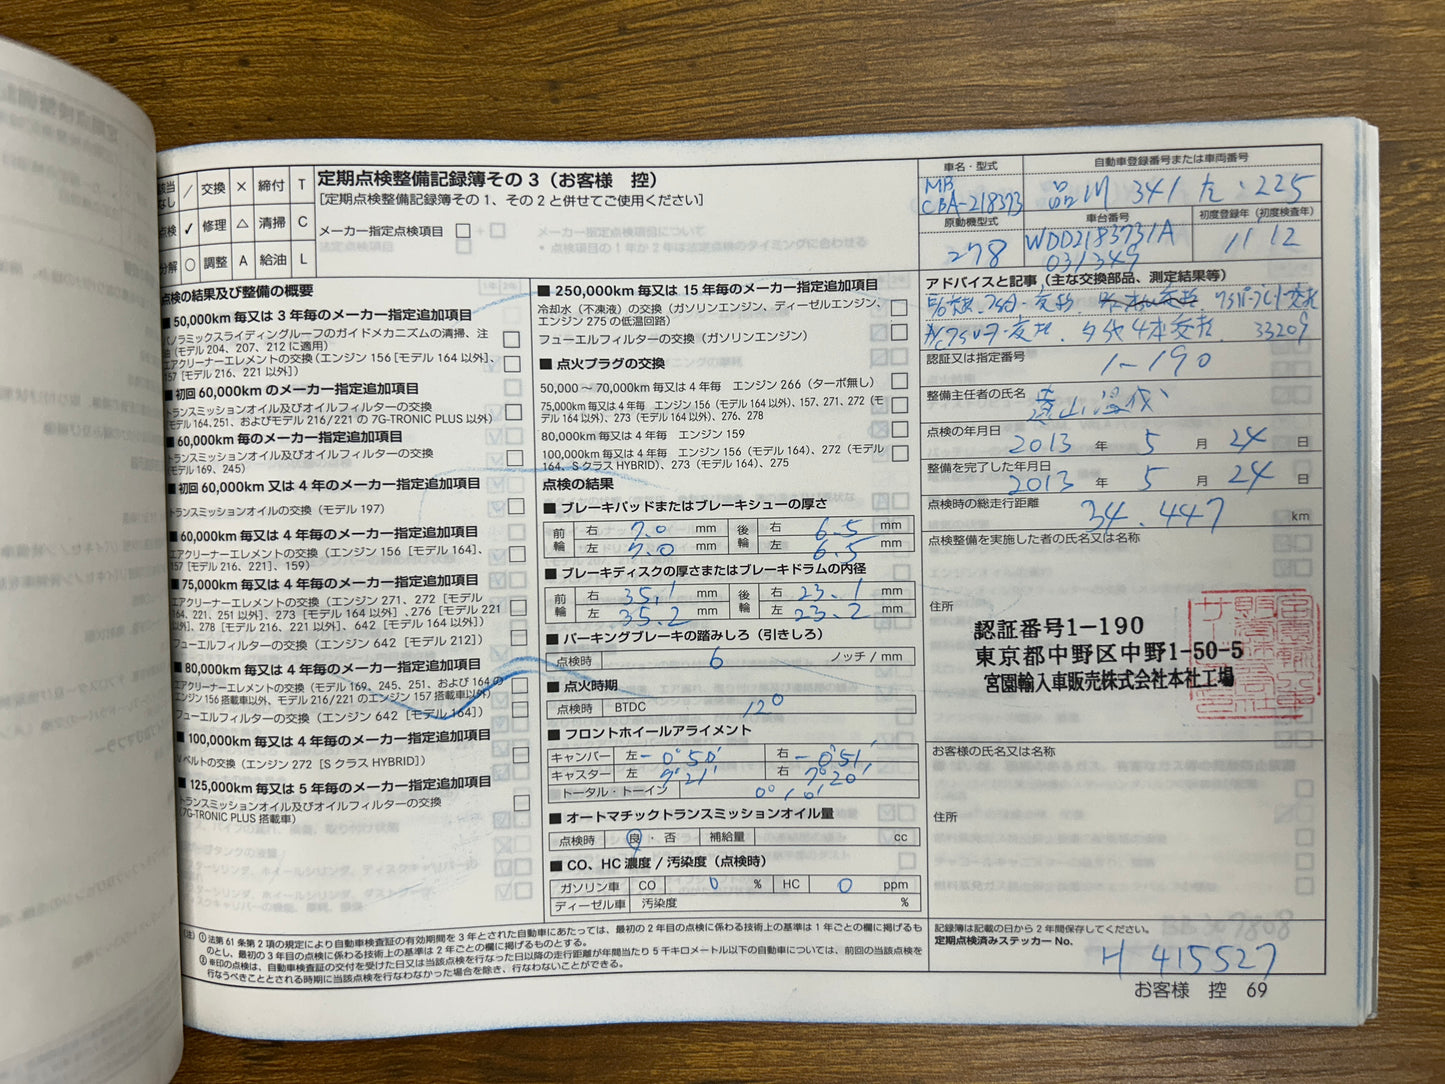 該当なし ／ 交換 × 締付 T
点検 ✓ 修理 △ 清掃 C
分解 ○ 調整 A 給油 L
定期点検整備記録簿その3（お客様 控）
[定期点検整備記録簿その1、その2と併せてご使用ください]
メーカー指定点検項目
点検の結果及び整備の概要
■50,000km毎又は3年毎のメーカー指定追加項目
パノラミックスライディングルーフのガイドメカニズムの清掃、注
油（モデル 204、207、212に適用）
エアクリーナーエレメントの交換（エンジン 156［モデル 164 以外］、
157［モデル 216、221 以外］）
■初回60,000kmのメーカー指定追加項目
トランスミッションオイル及びオイルフィルターの交換
（モデル164,251、およびモデル 216/221 の 7G-TRONIC PLUS 以外）
■60,000km毎のメーカー指定追加項目
トランスミッションオイル及びオイルフィルターの交換
（モデル 169、245）
■初回60,000km又は4年毎のメーカー指定追加項目
トランスミッションオイルの交換（モデル 197）
■60,000km毎又は4年毎のメーカー指定追加項目
エアクリーナーエレメントの交換（エンジン 156［モデル 164］、
157［モデル 216、221］、159）
■75,000km毎又は4年毎のメーカー指定追加項目
エアクリーナーエレメントの交換（エンジン 271、272［モデル
164、221、251 以外］、273［モデル 164 以外］、276［モデル 221
以外］、278［モデル 216、221 以外］、642［モデル 164 以外］）
フューエルフィルターの交換（エンジン 642［モデル 212］）
■80,000km毎又は4年毎のメーカー指定追加項目
エアクリーナーエレメントの交換（モデル 169、245、251、および 164 の
エンジン 156 搭載車以外、モデル 216/221 のエンジン 157 搭載車以外）
フューエルフィルターの交換（エンジン 642［モデル 164］）
■100,000km毎又は4年毎のメーカー指定追加項目
Vベルトの交換（エンジン 272［Sクラス HYBRID］）
■125,000km毎又は5年毎のメーカー指定追加項目
トランスミッションオイル及びオイルフィルターの交換
（7G-TRONIC PLUS 搭載車）
■250,000km毎又は15年毎のメーカー指定追加項目
冷却水（不凍液）の交換（ガソリンエンジン、ディーゼルエンジン、
エンジン 275 の低温回路）
フューエルフィルターの交換（ガソリンエンジン）
■点火プラグの交換
50,000 ～ 70,000km 毎又は 4 年毎 エンジン 266（ターボ無し）
75,000km 毎又は 4 年毎 エンジン 156（モデル 164 以外）、157、271、272（モ
デル 164 以外）、273（モデル 164 以外）、276、278
80,000km 毎又は 4 年毎 エンジン 159
100,000km 毎又は 4 年毎 エンジン 156（モデル 164）、272（モデル
164、Sクラス HYBRID）、273（モデル 164）、275
点検の結果
■ブレーキパッドまたはブレーキシューの厚さ
前輪 右 7.0 mm 後輪 右 6.5 mm
左 7.0 mm 左 6.5 mm
■ブレーキディスクの厚さまたはブレーキドラムの内径
前輪 右 35.1 mm 後輪 右 23.1 mm
左 35.2 mm 左 23.2 mm
■パーキングブレーキの踏みしろ（引きしろ）
点検時 6 ノッチ / mm
■点火時期
点検時 BTDC 12°
■フロントホイールアライメント
キャンバー 左 -0°50′ 右 -0°51′
キャスター 左 7°21′ 右 7°20′
トータル・トーイン 0°10′
■オートマチックトランスミッションオイル量
点検時 良・否 補給量 cc
■CO、HC濃度 / 汚染度（点検時）
ガソリン車 CO 0 % HC 0 ppm
ディーゼル車 汚染度 %
車名・型式
MB
CBA-218373
自動車登録番号または車両番号
品川 341 た・225
原動機型式
278
車台番号
WDD2183731A
031349
初度登録年（初度検査年）
11 12
アドバイスと記事（主な交換部品、測定結果等）
交換
タイヤ4本交換 33209
認証又は指定番号
1-190
整備主任者の氏名
点検の年月日
2013 年 5 月 24 日
整備を完了した年月日
2013 年 5 月 24 日
点検時の総走行距離
34,447 km
点検整備を実施した者の氏名又は名称
住所
認証番号1－190
東京都中野区中野1-50-5
宮園輸入車販売株式会社本社工場
お客様の氏名又は名称
住所
（注）①法第61条第2項の規定により自動車検査証の有効期間を3年とされた自動車にあたっては、最初の2年目の点検に係わる技術上の基準は1年ごとの欄に掲げるも
のとし、最初の3年目の点検に係わる技術上の基準は2年ごとの欄に掲げるものとする。
②車印の点検は、自動車検査証の交付を受けた日又は当該点検を行なった日以降の走行距離が年間当たり5千キロメートル以下の自動車については、前回の当該点検を
行なうべきこととされる時期に当該点検を行なわなかった場合を除き、行なわないことができる。
記録簿は記載の日から2年間保存してください。
定期点検済みステッカー No.
H 415527
お客様 控 69